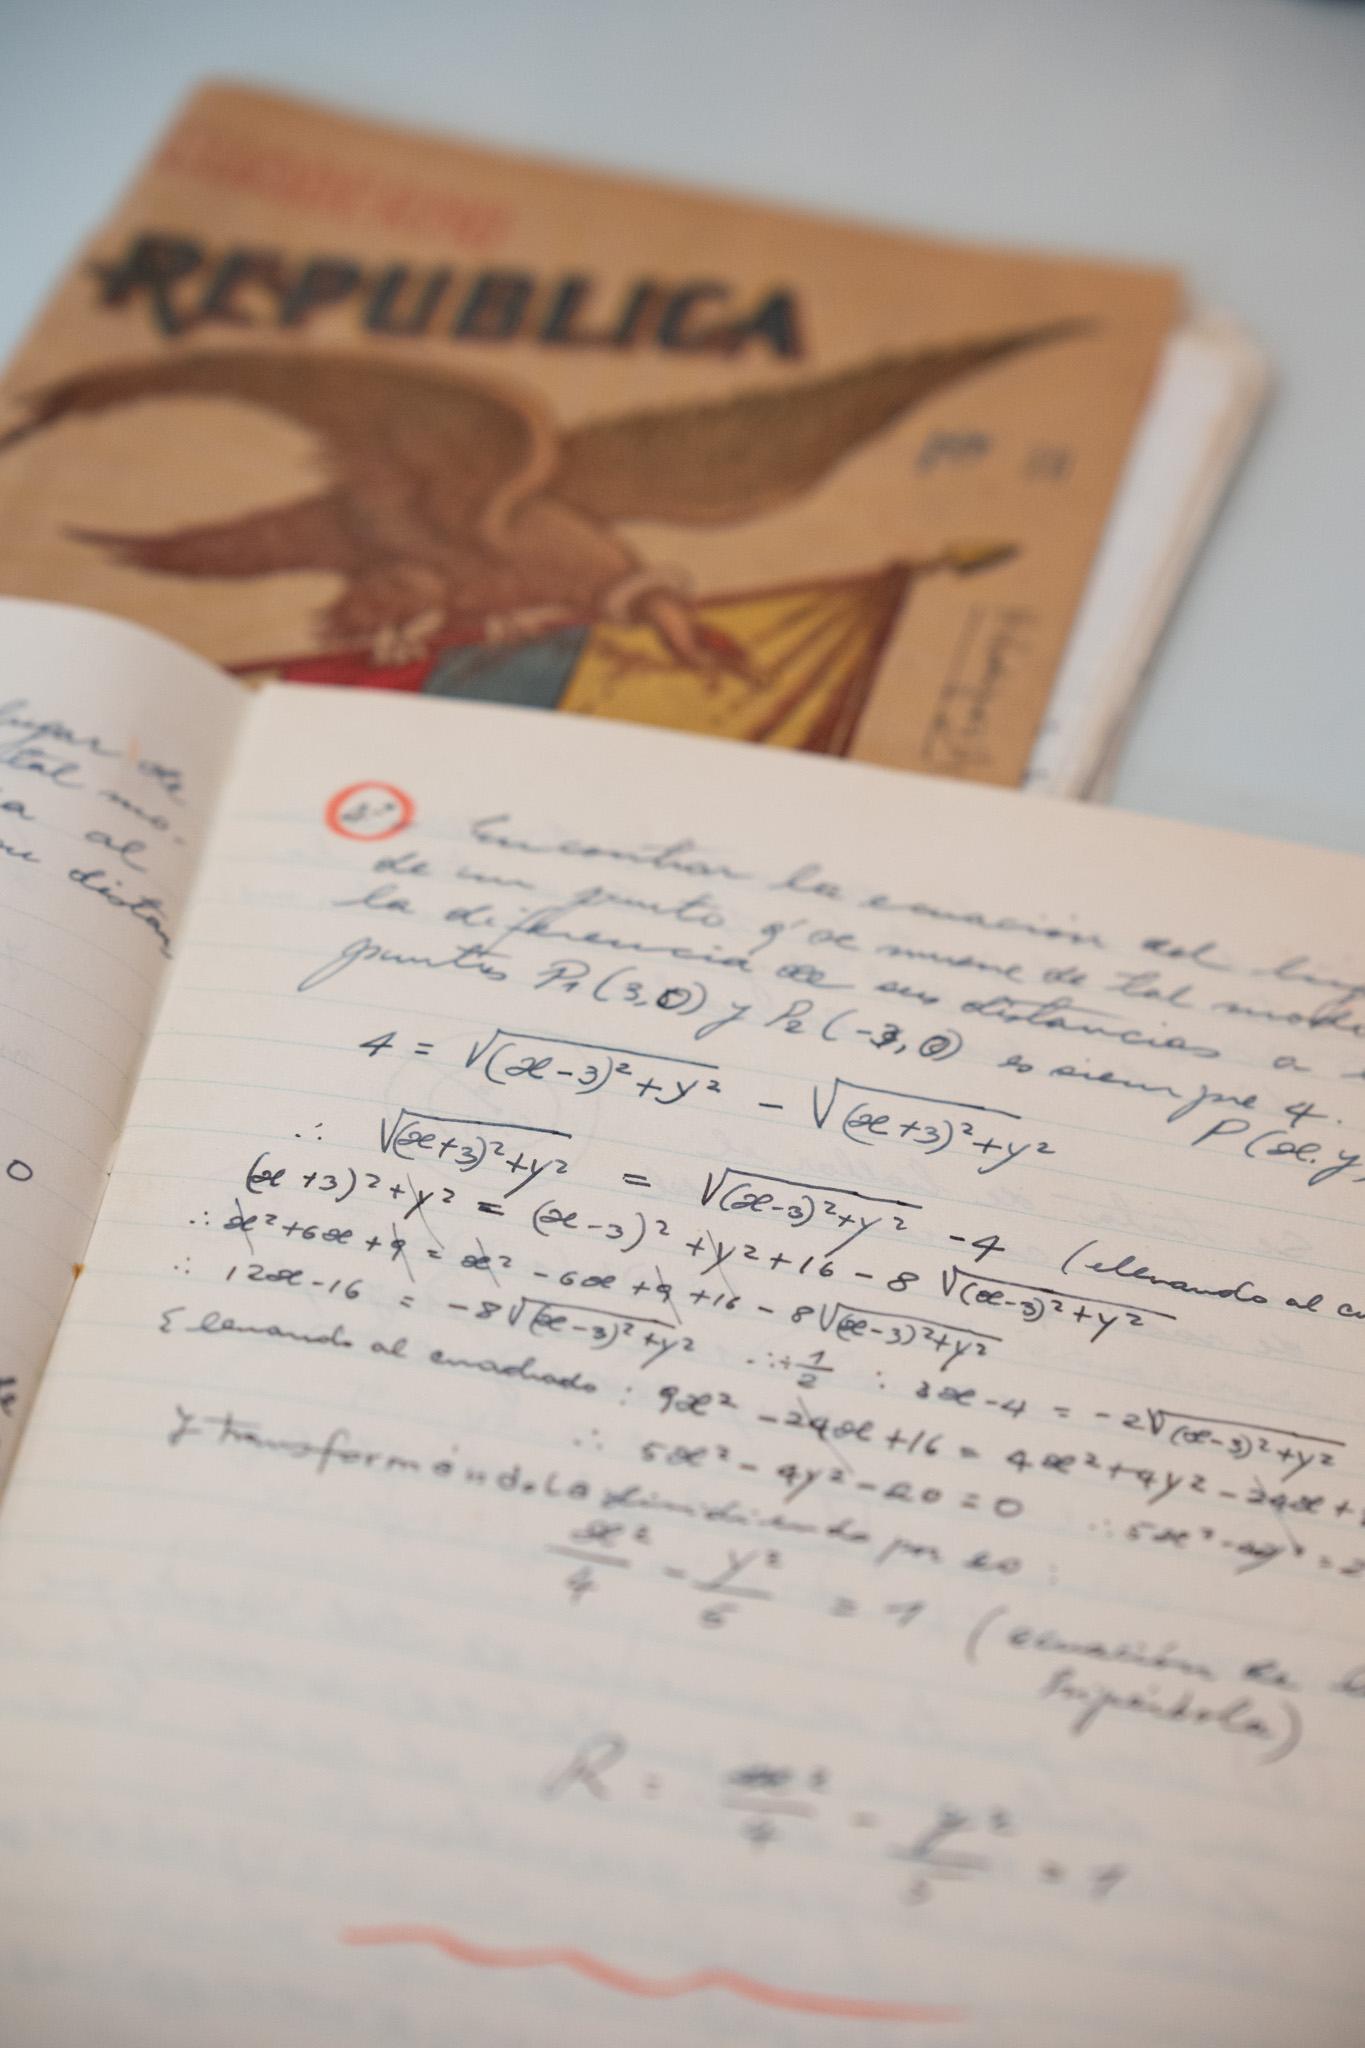 REPUBLICA
lugar de
tal mo-
al
distan
0
Encontrar la ecuación del lug
de un punto q' se mueve de tal modo
la diferencia de sus distancias a
puntos P₁ (3,0) y P₂ (-3,0) es siempre 4.
P(x,y)
4 = √(x-3)²+y² - √(x+3)²+y²
∴ √(x+3)²+y² = √(x-3)²+y² -4 (elevando al cu
(x+3)²+y² = (x-3)²+y²+16-8 √(x-3)²+y²
∴ x²+6x+9 = x²-6x+9+16-8√(x-3)²+y²
∴ 12x-16 = -8√(x-3)²+y² ∴ ÷ 1/2 : 3x-4 = -2√(x-3)²+y²
Elevando al cuadrado : 9x²-24x+16 = 4x²+4y²-24x+
∴ 5x²-4y²-20=0 ∴ 5x²-4y²=2
y transformándola dividiendo por 20 :
x²/4 - y²/5 = 1 (ecuación de l
hipérbola)
R = x²/4 - y²/5 = 1